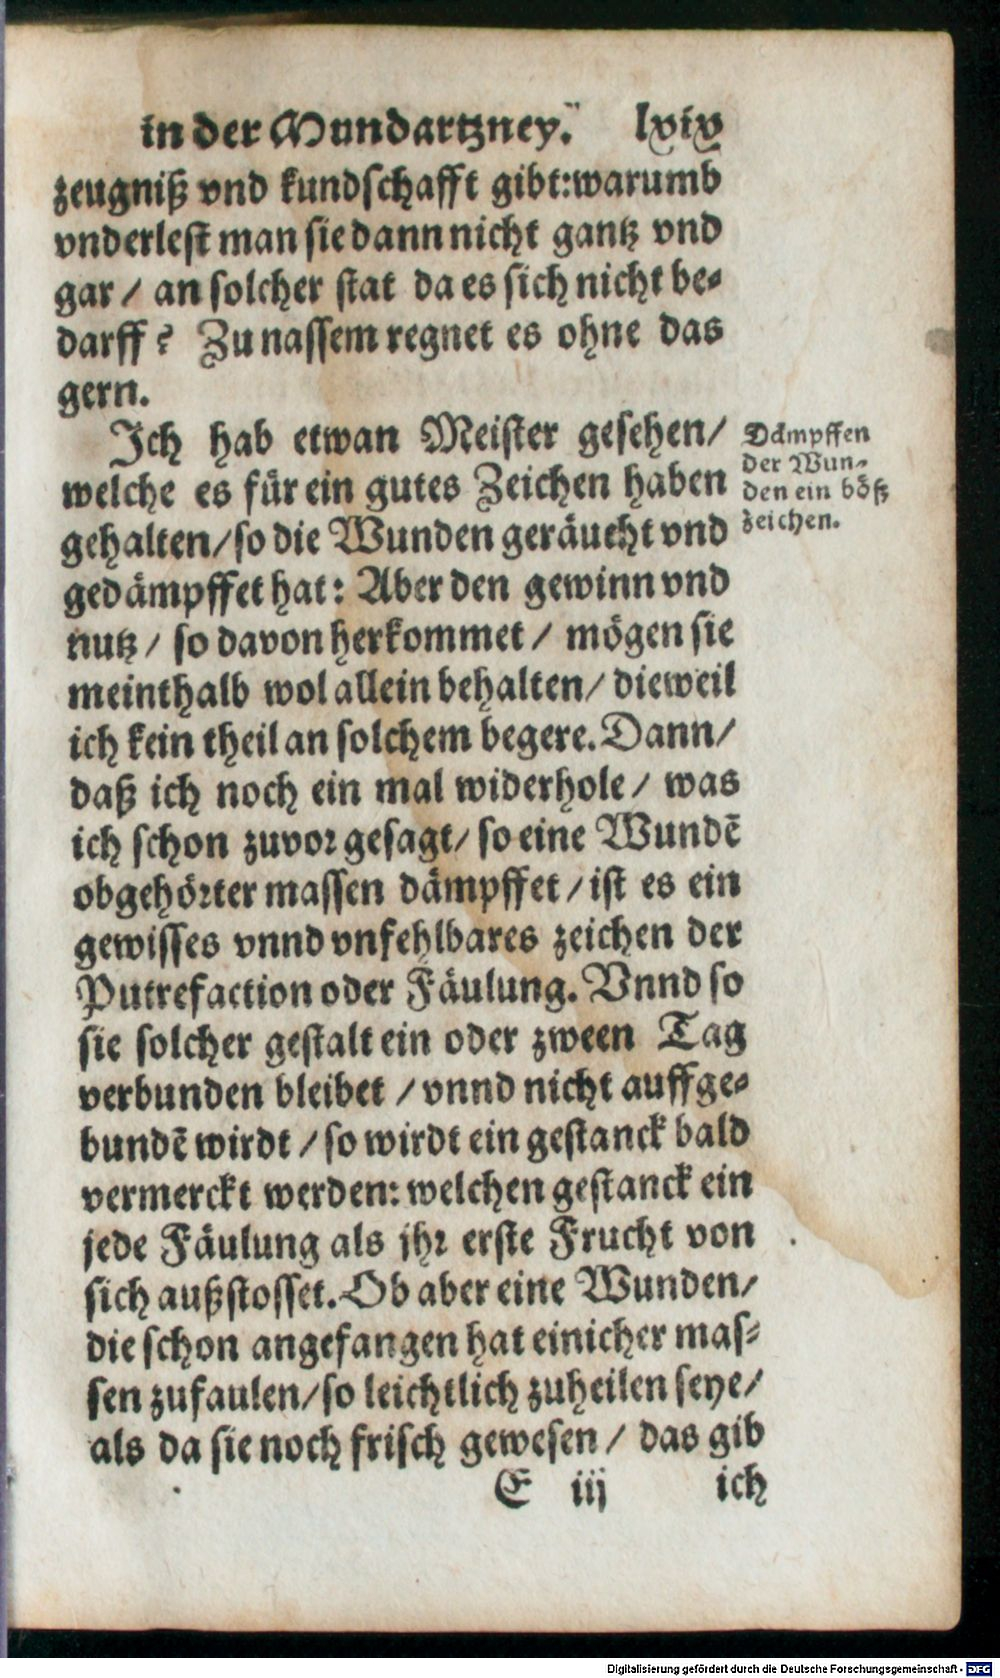 in der Wundartzney. lxix
zeugniß vnd kundschafft gibt: warumb
vnderlest man sie dann nicht gantz vnd
gar / an solcher stat da es sich nicht be-
darff? Zu nassem regnet es ohne das
gern.
Ich hab etwan Meister gesehen/
welche es für ein gutes Zeichen haben
gehalten/ so die Wunden geräucht vnd
gedämpffet hat: Aber den gewinn vnd
nutz / so davon herkommet / mögen sie
meinthalb wol allein behalten/ dieweil
ich kein theil an solchem begere. Dann/
daß ich noch ein mal widerhole / was
ich schon zuvor gesagt/ so eine Wundē
obgehörter massen dämpffet / ist es ein
gewisses vnnd vnfehlbares zeichen der
Putrefaction oder Fäulung. Vnnd so
sie solcher gestalt ein oder zween Tag
verbunden bleibet / vnnd nicht auffge-
bundē wirdt / so wirdt ein gestanck bald
vermerckt werden: welchen gestanck ein
jede Fäulung als jhr erste Frucht von
sich außstosset. Ob aber eine Wunden/
die schon angefangen hat einicher mas-
sen zufaulen/ so leichtlich zuheilen seye/
als da sie noch frisch gewesen / das gib
E iij ich
Dämpffen
der Wun-
den ein böß
zeichen.
Digitalisierung gefördert durch die Deutsche Forschungsgemeinschaft - DFG